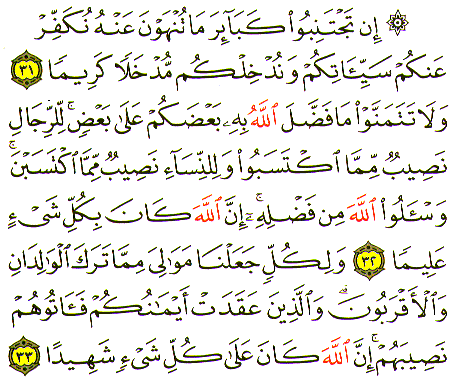 ۞ إِن تَجْتَنِبُوا۟ كَبَآئِرَ مَا تُنْهَوْنَ عَنْهُ نُكَفِّرْ
عَنكُمْ سَيِّـَٔاتِكُمْ وَنُدْخِلْكُم مُّدْخَلًا كَرِيمًا ٣١
وَلَا تَتَمَنَّوْا۟ مَا فَضَّلَ ٱللَّهُ بِهِۦ بَعْضَكُمْ عَلَىٰ بَعْضٍ ۚ لِّلرِّجَالِ
نَصِيبٌ مِّمَّا ٱكْتَسَبُوا۟ ۖ وَلِلنِّسَآءِ نَصِيبٌ مِّمَّا ٱكْتَسَبْنَ ۚ
وَسْـَٔلُوا۟ ٱللَّهَ مِن فَضْلِهِۦٓ ۗ إِنَّ ٱللَّهَ كَانَ بِكُلِّ شَىْءٍ
عَلِيمًا ٣٢ وَلِكُلٍّ جَعَلْنَا مَوَٰلِىَ مِمَّا تَرَكَ ٱلْوَٰلِدَانِ
وَٱلْأَقْرَبُونَ ۚ وَٱلَّذِينَ عَقَدَتْ أَيْمَٰنُكُمْ فَـَٔاتُوهُمْ
نَصِيبَهُمْ ۚ إِنَّ ٱللَّهَ كَانَ عَلَىٰ كُلِّ شَىْءٍ شَهِيدًا ٣٣